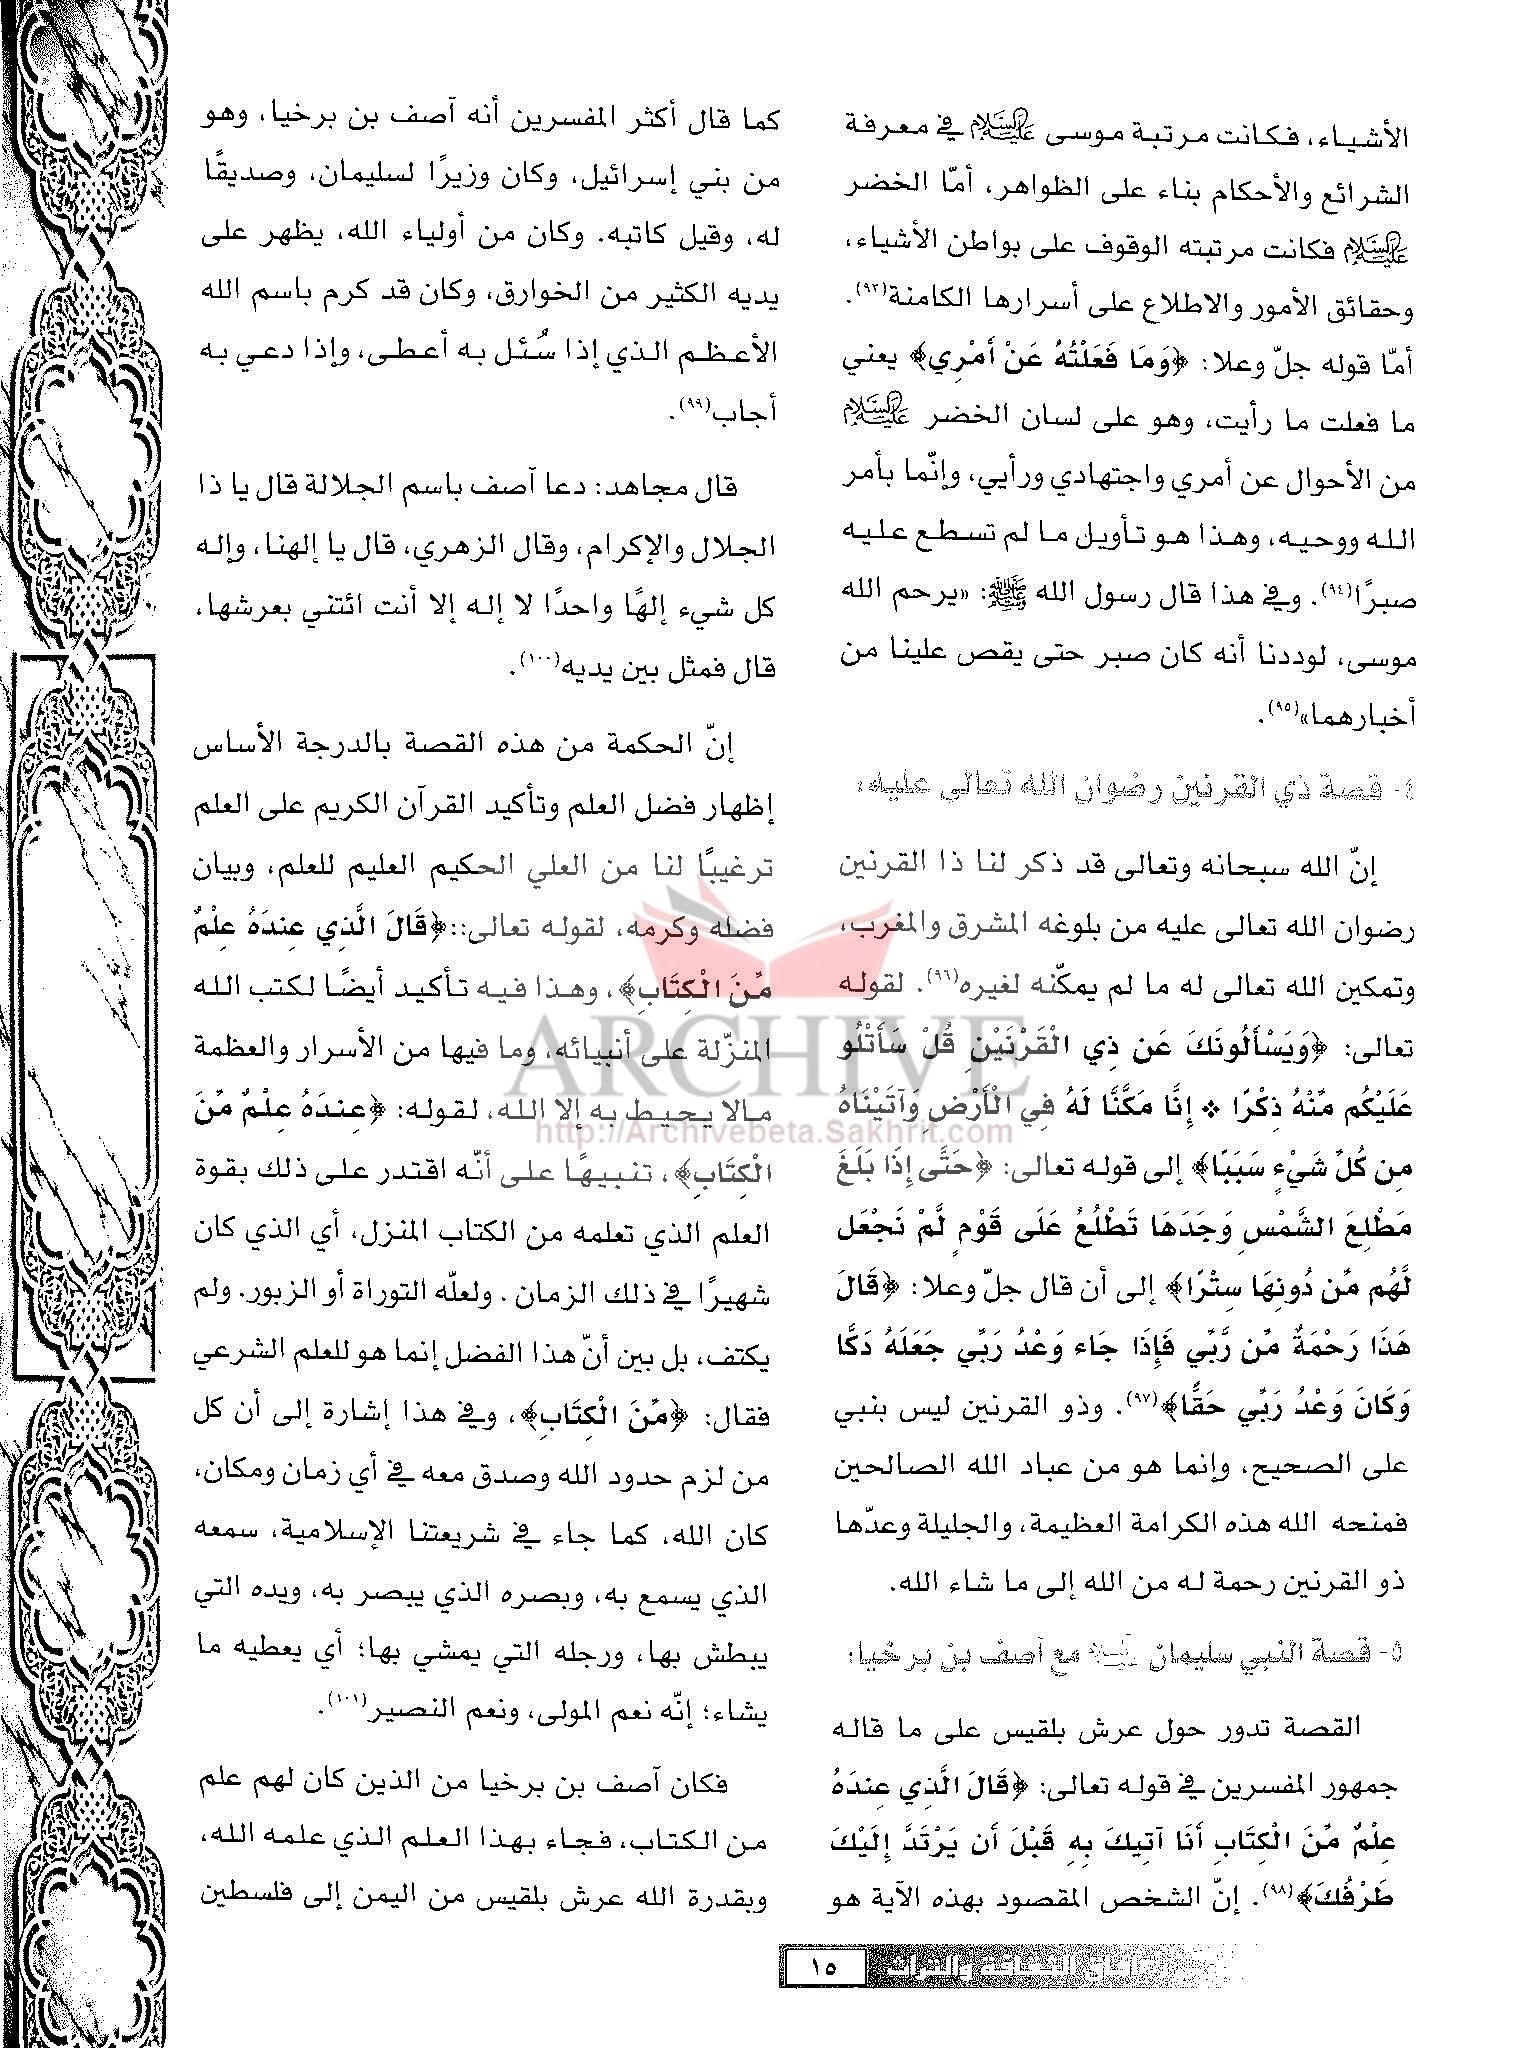 الأشياء، فكانت مرتبة موسى عليه السلام في معرفة
الشرائع والأحكام بناء على الظواهر، أمّا الخضر
عليه السلام فكانت مرتبته الوقوف على بواطن الأشياء،
وحقائق الأمور والاطلاع على أسرارها الكامنة(٩٣).
أمّا قوله جلّ وعلا: ﴿وَمَا فَعَلْتُهُ عَنْ أَمْرِي﴾ يعني
ما فعلت ما رأيت، وهو على لسان الخضر عليه السلام
من الأحوال عن أمري واجتهادي ورأيي، وإنّما بأمر
الله ووحيه، وهذا هو تأويل ما لم تسطع عليه
صبرًا(٩٤). وفي هذا قال رسول الله ﷺ: «يرحم الله
موسى، لوددنا أنه كان صبر حتى يقص علينا من
أخبارهما»(٩٥).
٤- قصة ذي القرنين رضوان الله تعالى عليه:
إنّ الله سبحانه وتعالى قد ذكر لنا ذا القرنين
رضوان الله تعالى عليه من بلوغه المشرق والمغرب،
وتمكين الله تعالى له ما لم يمكّنه لغيره(٩٦). لقوله
تعالى: ﴿وَيَسْأَلُونَكَ عَن ذِي الْقَرْنَيْنِ قُلْ سَأَتْلُو
عَلَيْكُم مِّنْهُ ذِكْرًا * إِنَّا مَكَّنَّا لَهُ فِي الْأَرْضِ وَآتَيْنَاهُ
مِن كُلِّ شَيْءٍ سَبَبًا﴾ إلى قوله تعالى: ﴿حَتَّى إِذَا بَلَغَ
مَطْلِعَ الشَّمْسِ وَجَدَهَا تَطْلُعُ عَلَى قَوْمٍ لَّمْ نَجْعَل
لَّهُم مِّن دُونِهَا سِتْرًا﴾ إلى أن قال جلّ وعلا: ﴿قَالَ
هَذَا رَحْمَةٌ مِّن رَّبِّي فَإِذَا جَاء وَعْدُ رَبِّي جَعَلَهُ دَكَّا
وَكَانَ وَعْدُ رَبِّي حَقًّا﴾(٩٧). وذو القرنين ليس بنبي
على الصحيح، وإنما هو من عباد الله الصالحين
فمنحه الله هذه الكرامة العظيمة، والجليلة وعدّها
ذو القرنين رحمة له من الله إلى ما شاء الله.
٥- قصة النبي سليمان عليه السلام مع آصف بن برخيا:
القصة تدور حول عرش بلقيس على ما قاله
جمهور المفسرين في قوله تعالى: ﴿قَالَ الَّذِي عِندَهُ
عِلْمٌ مِّنَ الْكِتَابِ أَنَا آتِيكَ بِهِ قَبْلَ أَن يَرْتَدَّ إِلَيْكَ
طَرْفُكَ﴾(٩٨). إنّ الشخص المقصود بهذه الآية هو
كما قال أكثر المفسرين أنه آصف بن برخيا، وهو
من بني إسرائيل، وكان وزيرًا لسليمان، وصديقًا
له، وقيل كاتبه. وكان من أولياء الله، يظهر على
يديه الكثير من الخوارق، وكان قد كرم باسم الله
الأعظم الذي إذا سُئل به أعطى، وإذا دعي به
أجاب(٩٩).
قال مجاهد: دعا آصف باسم الجلالة قال يا ذا
الجلال والإكرام، وقال الزهري، قال يا إلهنا، وإله
كل شيء إلهًا واحدًا لا إله إلا أنت ائتني بعرشها،
قال فمثل بين يديه(١٠٠).
إنّ الحكمة من هذه القصة بالدرجة الأساس
إظهار فضل العلم وتأكيد القرآن الكريم على العلم
ترغيبًا لنا من العلي الحكيم العليم للعلم، وبيان
فضله وكرمه، لقوله تعالى::﴿قَالَ الَّذِي عِندَهُ عِلْمٌ
مِّنَ الْكِتَابِ﴾، وهذا فيه تأكيد أيضًا لكتب الله
المنزّلة على أنبيائه، وما فيها من الأسرار والعظمة
مالا يحيط به إلا الله، لقوله: ﴿عِندَهُ عِلْمٌ مِّنَ
الْكِتَابِ﴾، تنبيهًا على أنّه اقتدر على ذلك بقوة
العلم الذي تعلمه من الكتاب المنزل، أي الذي كان
شهيرًا في ذلك الزمان. ولعلّه التوراة أو الزبور. ولم
يكتف، بل بين أنّ هذا الفضل إنما هو للعلم الشرعي
فقال: ﴿مِّنَ الْكِتَابِ﴾، وفي هذا إشارة إلى أن كل
من لزم حدود الله وصدق معه في أي زمان ومكان،
كان الله، كما جاء في شريعتنا الإسلامية، سمعه
الذي يسمع به، وبصره الذي يبصر به، ويده التي
يبطش بها، ورجله التي يمشي بها؛ أي يعطيه ما
يشاء؛ إنّه نعم المولى، ونعم النصير(١٠١).
فكان آصف بن برخيا من الذين كان لهم علم
من الكتاب، فجاء بهذا العلم الذي علمه الله،
وبقدرة الله عرش بلقيس من اليمن إلى فلسطين
ARCHIVE
http://Archivebeta.Sakhrit.com
آفاق الثقافة والتراث ١٥